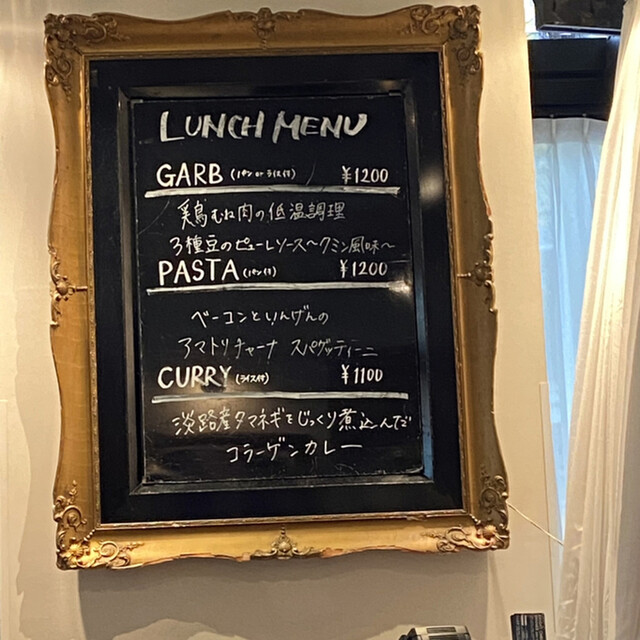 LUNCH MENU
GARB (パン or ライス付) ¥1200
鶏むね肉の低温調理
3種豆のピューレソース〜クミン風味〜
PASTA (パン付) ¥1200
ベーコンといんげんの
アマトリチャーナ スパゲッティーニ
CURRY (ライス付) ¥1100
淡路産タマネギをじっくり煮込んだ
コラーゲンカレー